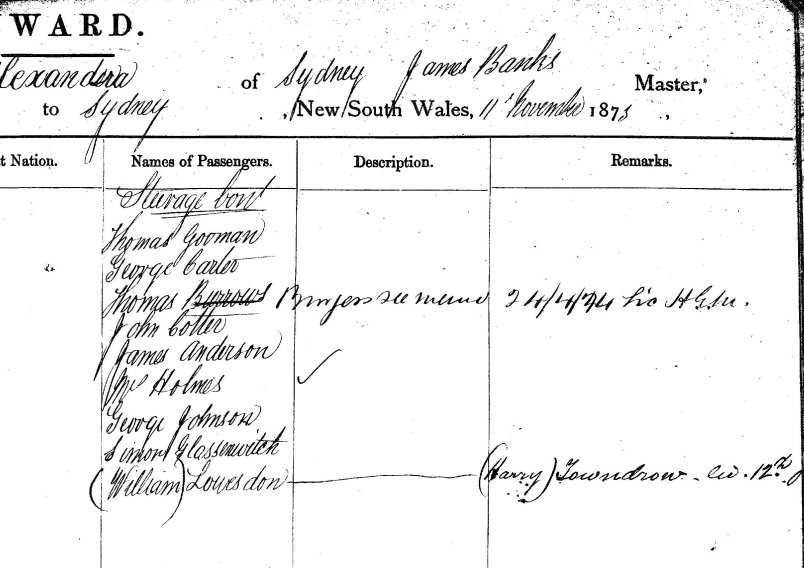 WARD.
lexandra of Sydney James Banks Master,
to Sydney , New South Wales, 11 November 187
t Nation. Names of Passengers. Description. Remarks.
Steerage cont
Thomas Gooman
George Carter
Thomas Burrows see memo 24/4/74
John Cotter
James Anderson
Mr Holmes
George Johnson
Simon Glassenwitch
(William) Lowesdon (Harry) Towndrow 12th